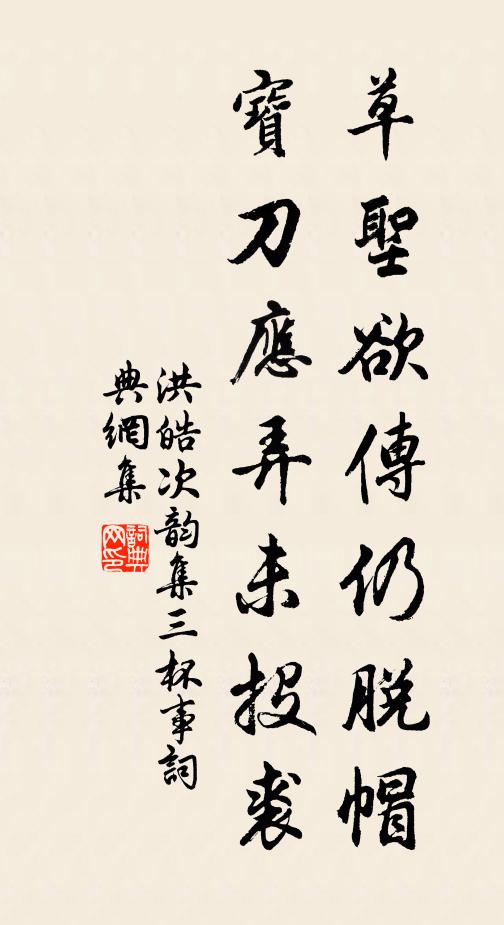 草聖欲傳仍脫帽
寶刀應弄未投裘
洪皓次韵集三杯事詞
典網集
詞典網印